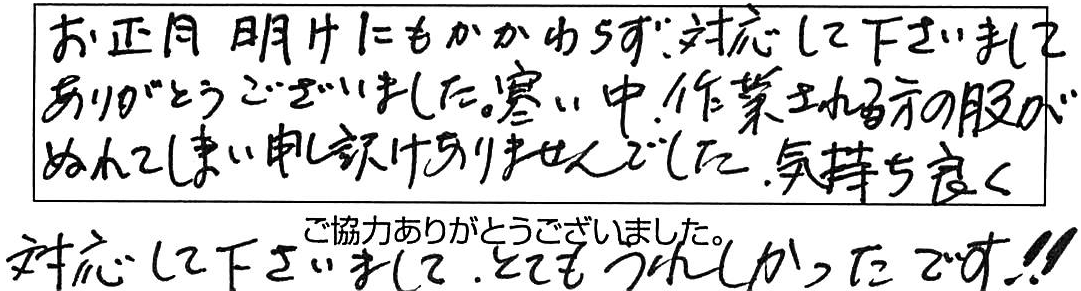 お正月明けにもかかわらず、対応して下さいまして
ありがとうございました。寒い中、作業される方の服が
ぬれてしまい申し訳けありませんでした。気持ち良く
ご協力ありがとうございました。
対応して下さいまして、とてもうれしかったです!!